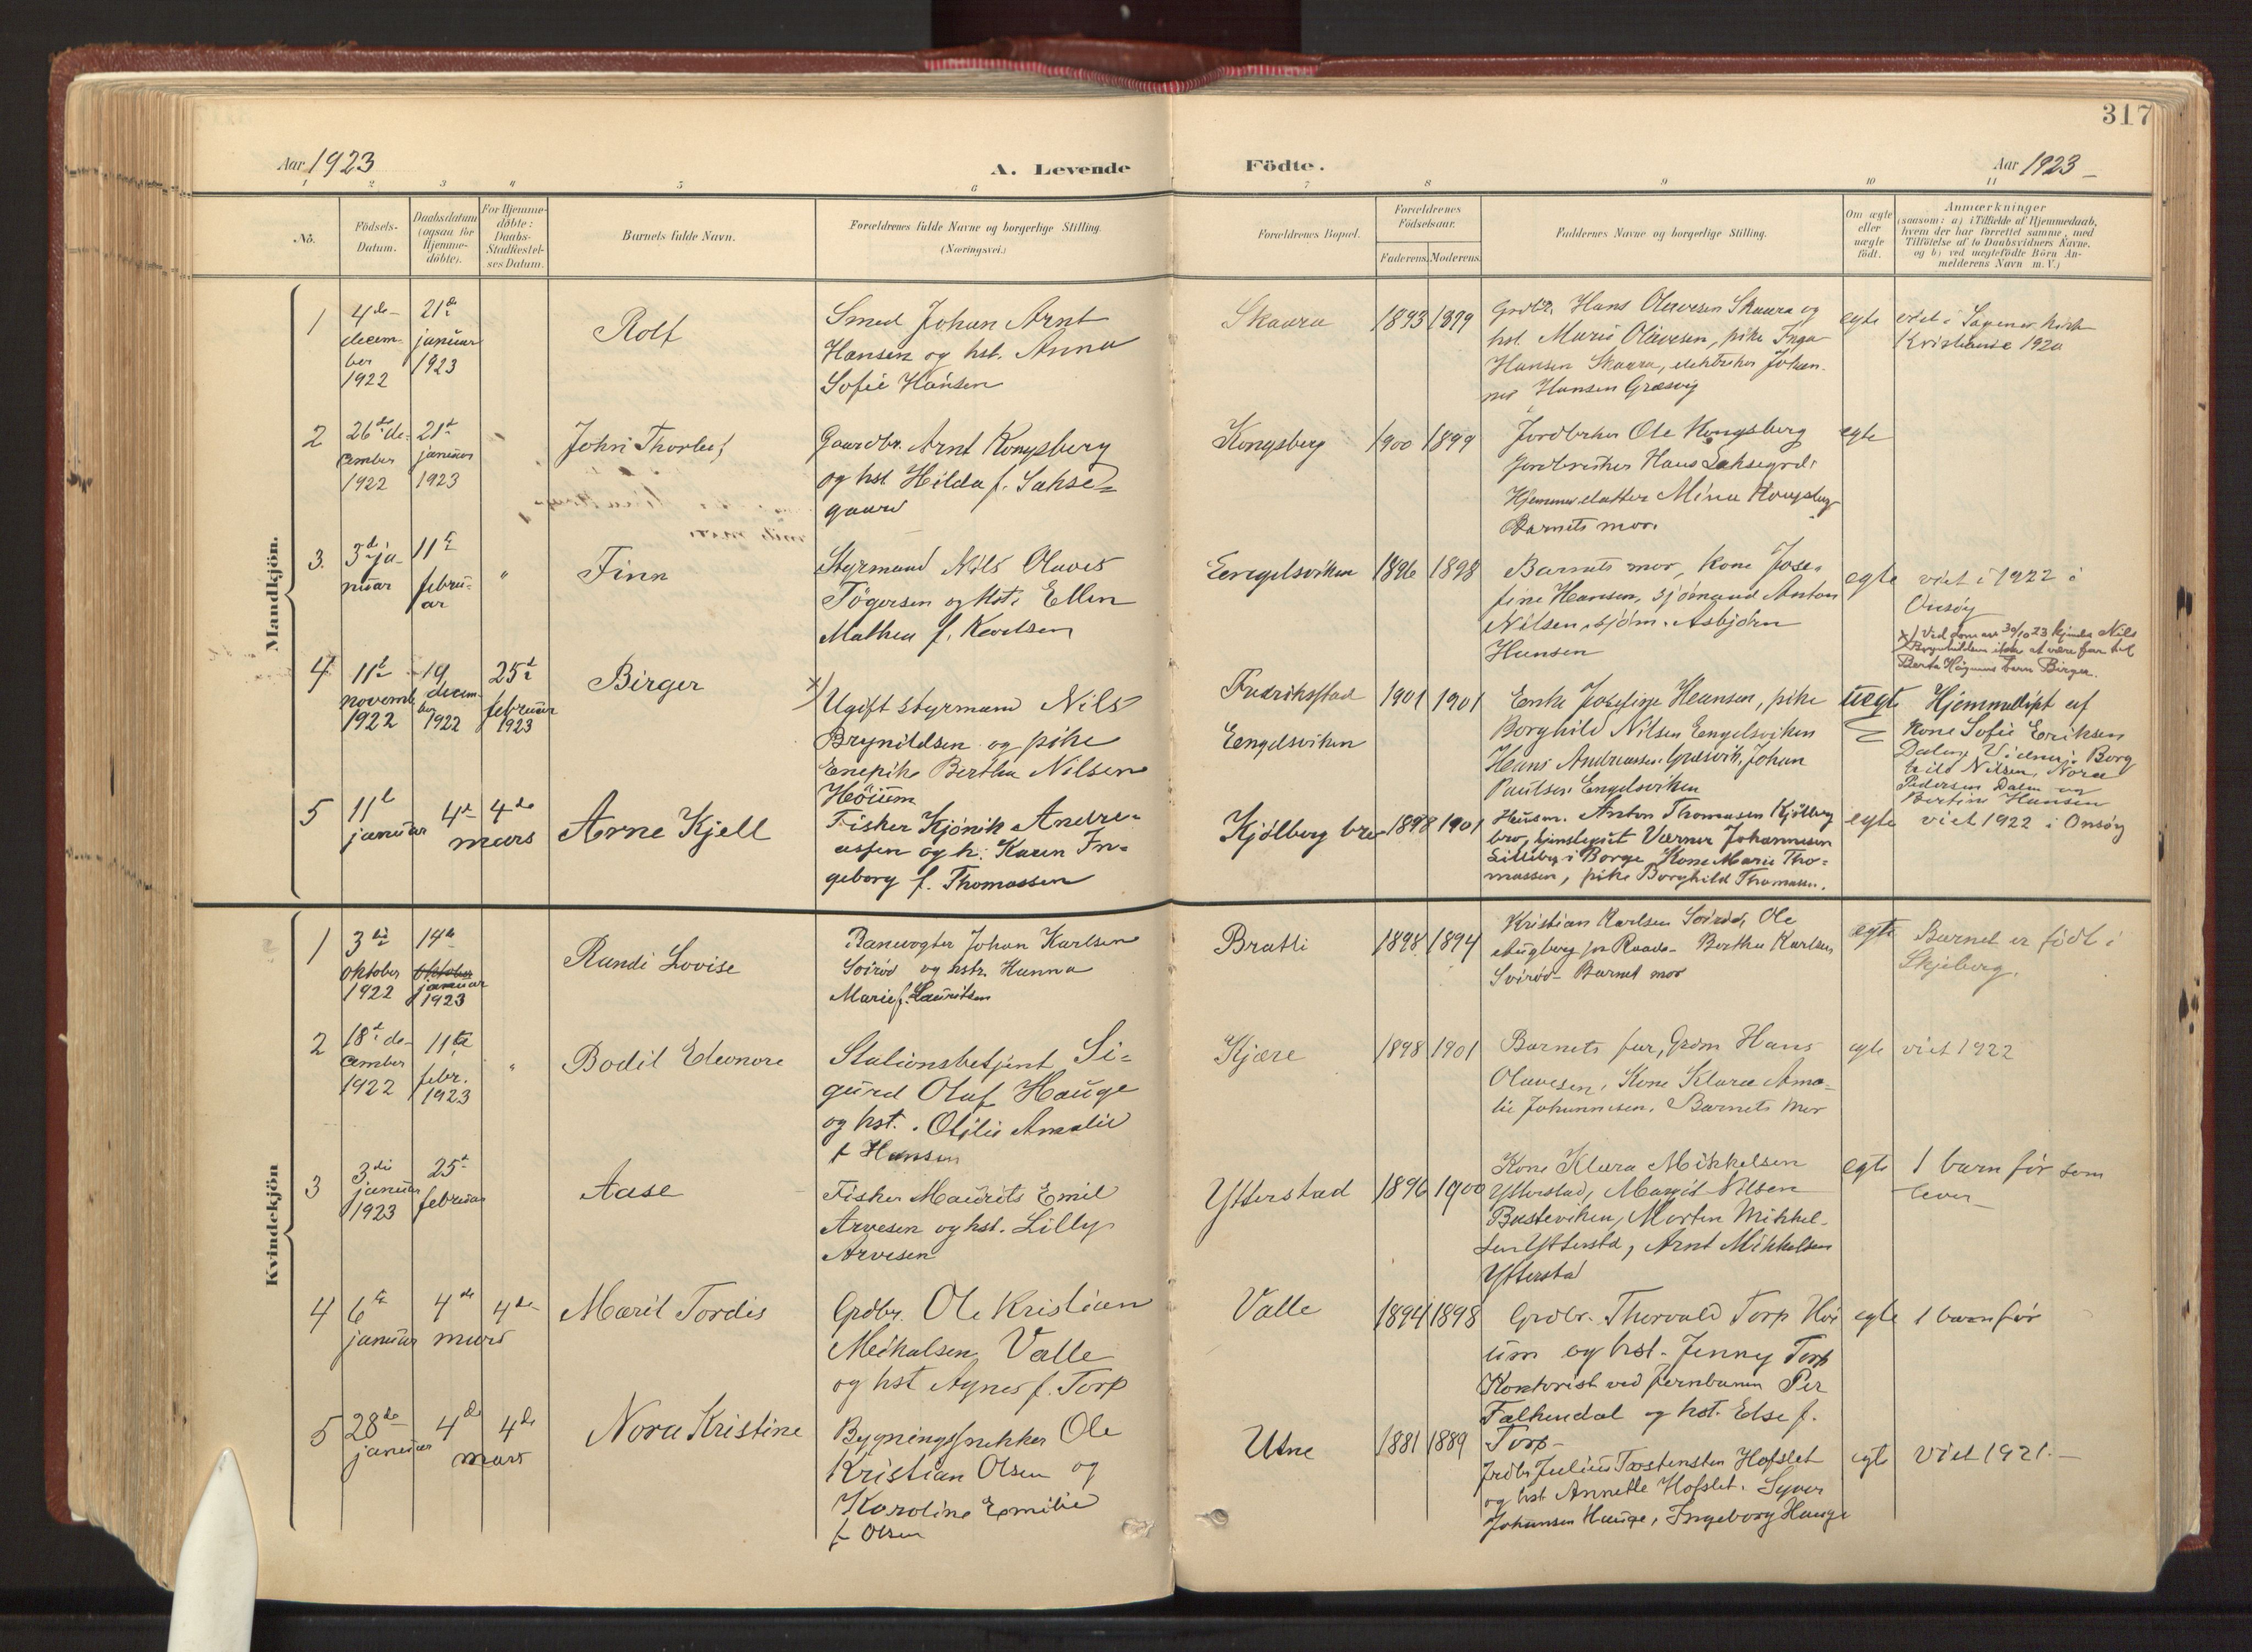 317
Aar 1923
A. Levende Födte.
Aar 1923
1 2 3 4 5 6 7 8 9 10 11
No.
Födsels-
Datum.
Daabsdatum
(ogsaa for
Hjemme-
döbte).
For Hjemme-
döbte:
Daabs-
Stadfæstel-
ses Datum.
Barnets fulde Navn.
Forældrenes fulde Navne og borgerlige Stilling.
(Næringsvei.)
Forældrenes Bopæl.
Forældrenes
Födselsaar.
Faderens. Moderens.
Faddernes Navne og borgerlige Stilling.
Om ægte
eller
uægte
födt.
Anmærkninger
(saasom: a) i Tilfælde af Hjemmedaab,
hvem der har forrettet samme, med
Tilföielse af to Daabsvidners Navne,
og b) ved uægtefödte Börn An-
melderens Navn m. V.)
Mandkjön.
1
4de
decem-
ber
1922
21de
januar
1923
Rolf
Smed Johan Arnt
Hansen og hst. Anna
Sofie Hansen
Skaara
1893 1899
Grdbr. Hans Olavesen Skaara og
hst. Marie Olavesen, pike Inga
Hansen Skaara, elektriker Johan-
nes Hansen Græsvig
egte
viet i Sagene kirke
Kristiania 1920
2
26de de-
cember
1922
21de
januar
1923
John Thorleif
Gaardbr. Arnt Kongsberg
og hst Hilda f. Sakse-
gaard
Kongsberg
1900 1899
Jordbruker Ole Kongsberg
Jordbruker Hans Saksegrd.
Hjemmev. datter Mina Kongsberg
Barnets mor.
egte
3.
3de ja-
nuar
11te
febru-
ar
"
Finn
Styrmand Nils Olaves
Tögersen og hst. Ellen
Mathea f. Karlsen
Engelsviken
1896 1898
Barnets mor, Kone Jose-
fine Hansen, sjömand Anton
Nilsen, sjöm. Asbjörn
Hansen
egte
viet i 1922 i
Onsöy
4
11te
novemb
1922
19
decem-
ber
1922
25de
februar
1923
Birger
x) Ugift styrmand Nils
Brynildsen og pike
Enepike Bertha Nilsen
Höium
Fredriksstad
Engelsviken
1901 1901
Enke Josefine Hansen, pike
Borghild Nilsen Engelsviken
Hans Andreassen Græsvik, Johan
Paulsen Engelsviken
uegte
x) Ved dom av 30/10 23 kjendes Nils
Brynhildsen at være far til
Berta Höyums barn Birger.
Hjemmedöpt af
Kone Sofie Eriksen
Dalen Vidner: Borg
hild Nilsen, Nora
Pedersen Dalen og
Bertine Hansen
5
11te
januar
4de 4de
mars
Arne Kjell
Fisker Kjönik Andre-
assen og h. Karen In-
geborg f. Thomassen
Kjölberg bro
1898 1901
Husm. Anton Thomassen Kjölberg
bro, tjenstegut Værner Johannesen
Lilleby i Borge Kone Marie Tho-
massen, pike Borghild Thomassen.
egte
viet 1922 i Onsöy
Kvindekjön
1
3die
oktober
1922
14de
oktober
januar
1923
Randi Lovise
Banevogter Johan Karlsen
Soiröd og hstr. Hanna
Marie f. Lauritsen
Bratli
1898 1894
Kristian Karlsen Soiröd, Ole
Augberg pr Raade- Berthe Karlsen
Soiröd- Barnet mor
egte
Barnet er födt i
Skjeberg.
2
18de de-
cember
1922
11te
febr.
1923
"
Bodil Eleonore
Stationsbetjent Si-
gurd Olaf Hauge
og hst. Otilie Amalie
f Hansen
Kjære
1898 1901
Barnets far, Grdm Hans
Olavesen, Kone Klara Ama-
lie Johannesen. Barnets mor
egte
viet 1922
3
3die
januar
1923
25de
februar
Aase
Fisker Maurits Emil
Arvesen og hst. Lilly
Arvesen
Ytterstad
1896 1900
Kone Klara Mikkelsen
Ytterstad, Margit Nilsen
Busteviken, Morten Mikkel-
sen Ytterstad, Arnt Mikkelsen
Ytterstad
egte
1 barn för som
lever
4
6te
januar
4de
mars
4de
Marit Tordis
Grdbr. Ole Kristian
Mikalsen Valle
og hst Agnes f. Torp
Valle
1894 1898
Grdbr. Thorvald Torp Höi
um og hst. Jenny Torp
Kontorist ved jernbanen Per
Falkendal og hst. Else f.
Torp
egte
1 barn för
5
28de
januar
4de 4de
mars
Nora Kristine
Bygningssnekker Ole
Kristian Olsen og
Karoline Emilie
f Olsen
Utne
1881 1889
Jrdbr Julius Torstensen Hofslet
og hst Annette Hofslet. Syver
Johansen Hauge, Ingeborg Hauge
egte
Viet 1921.